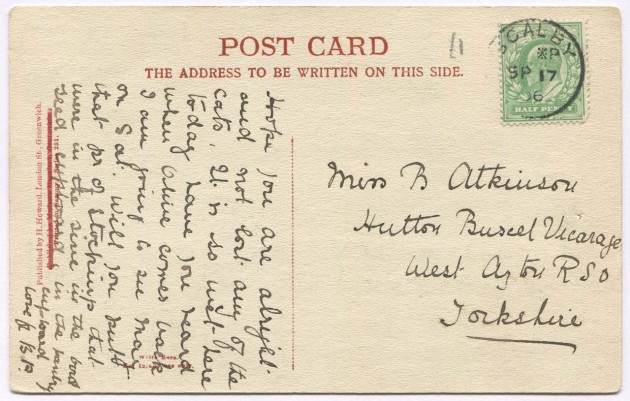 POST CARD
THE ADDRESS TO BE WRITTEN ON THIS SIDE.
SCALBY
SP 17
06
HALF PENNY
Hope you are alright
and not lost any of the
cats. It is so wet here
today. Have you heard
when Olive comes back
I am going to see Mary
on Sat. Will you
that pr of Stockings that
were in the
seed cupboard & in the pantry
cupboard
love fr
Miss B Atkinson
Hutton Buscel Vicarage
West Ayton R S O
Yorkshire
Published by H. Howard, London St., Greenwich.